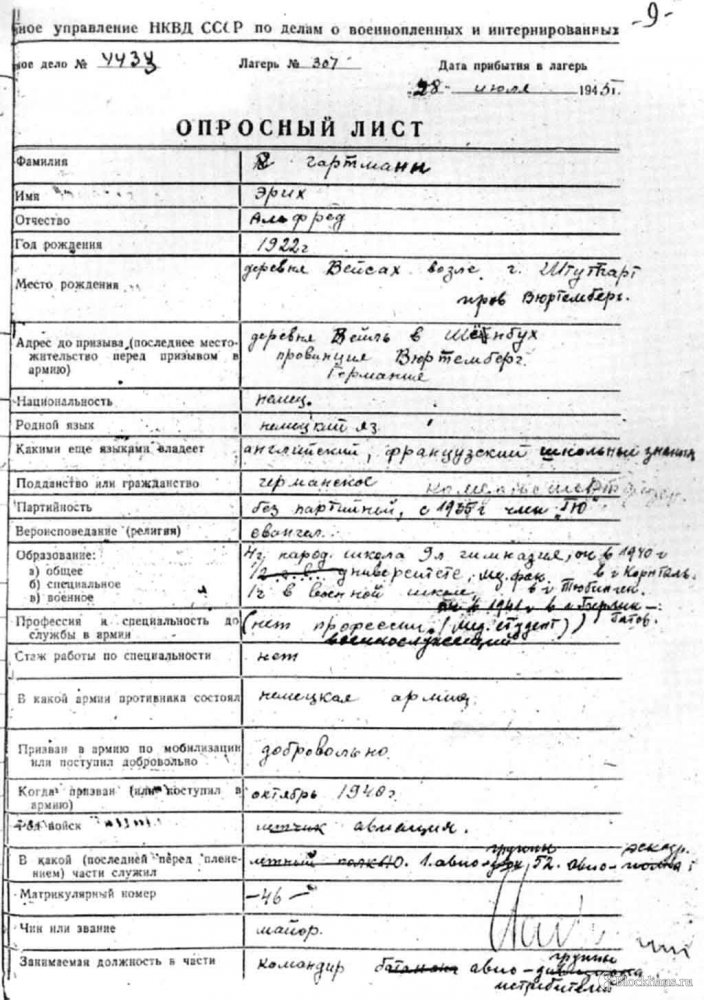 -9-
ное управление НКВД СССР по делам о военнопленных и интернированных
ное дело № Лагерь № 307 Дата прибытия в лагерь
28 июля 1945г.
ОПРОСНЫЙ ЛИСТ
Фамилия гартманн
Имя Эрих
Отчество Альфред
Год рождения 1922г
Место рождения деревня Вейсах возле г. Штутгарт
пров Вюртемберг.
Адрес до призыва (последнее место- деревня Вейль в Шёнбух
жительство перед призывом в провинция Вюртемберг
армию) Германия
Национальность немец.
Родной язык немецкий яз
Какими еще языками владеет английский, французский школьный знания
Подданство или гражданство германское
Партийность без партийный, с 1935г член
Вероисповедание (религия) евангел.
Образование: 4г. народ. школа 9л гимназия, ок в 1940г
а) общее университете, мед. фак. в г Корнталь.
б) специальное 1г в военной школе в г Тюбинген.
в) военное в 1941г в г. Берлин-
Профессия и специальность до (нет профессии (мед. студент)) Гатов.
службы в армии военнослужащий
Стаж работы по специальности нет
В какой армии противника состоял немецкая армия
Призван в армию по мобилизации добровольно
или поступил добровольно
Когда призван (или поступил в октябрь 1940г.
армию)
Род войск летчик авиация.
группы эскадр.
В какой (последней перед плене- 1. авио- 52. авио-полка
нием) части служил
Матрикулярный номер -46-
Чин или звание майор.
группы
Занимаемая должность в части командир авио-дивизиона
истребителей
Blockhaus.ru